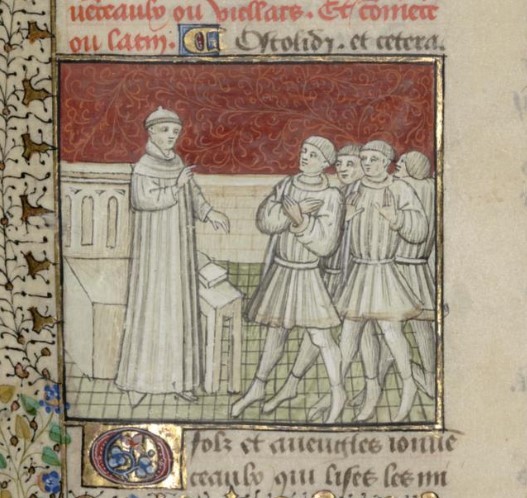 uereaulx ou viellars. Et comece
ou latin. O Ostolidi. et cetera.
O folz et aueugles ionue
ceaulx qui lises les mi